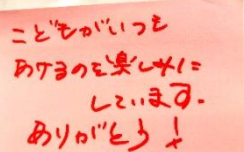 こどもがいつも
あけるのを楽しみに
しています.
ありがとう!